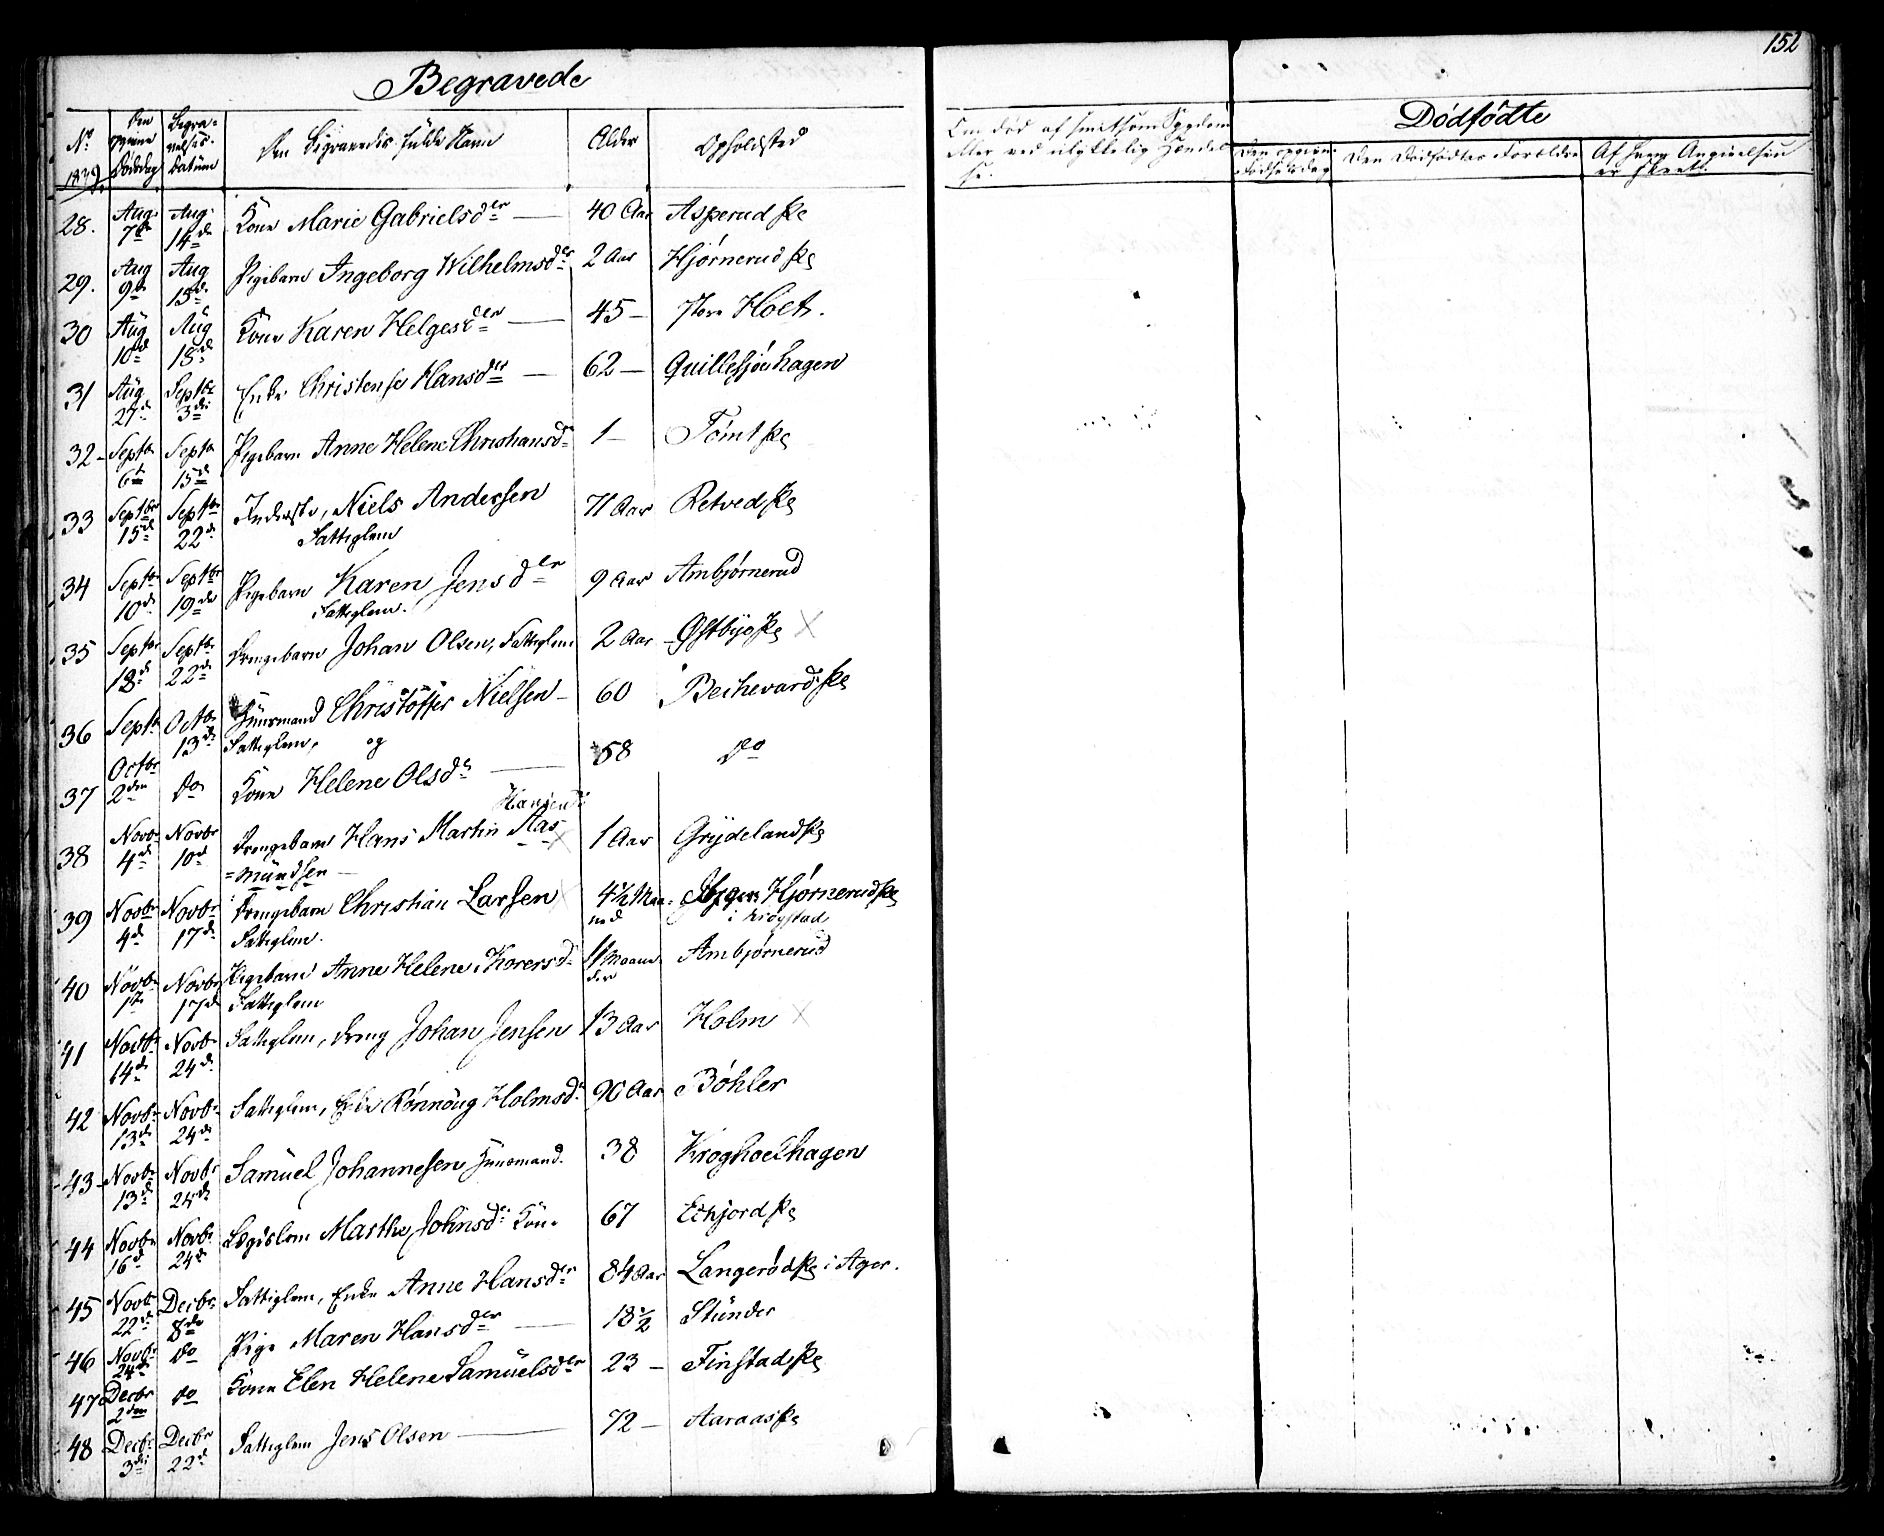 152
Begravede
Dødfødte
No 1839. Den opgivne Dødsdag Begravelses-Datum Den Begravedes fulde Navn Alder Opholdsted
Om død af smitsom Sygdom eller ved ulykkelig Hændelse.
Den opgivne Fødselsdag Den Dødfødtes Forældre Af hvem Angivelsen er skeet.
28. Aug. 7de Aug. 14de Kone Marie Gabrielsder — 40 Aar Asperud Pe
29. Aug 9de Aug 15de Pigebarn Ingeborg Wilhelmsder 2 Aar Hjørnerud Pe
30 Aug 10de Aug 18de Kone Karen Helgesder — 45 — Store Hoel.
31 Aug. 27de Septbr 3die Enke Christense Hansder — 62 — Quillesjøehagen
32 - Septbr 6te Septbr 15de Pigebarn Anne Helene Christiansdr 1 — Tømt Pe
33 Septbr 15de Septbr 22de Inderste, Niels Andersen 71 Aar Retved Pe
Fattiglem
34 Septbr 10de Septbr 19de Pigebarn Karen Jensder 9 Aar Ambjørnerud
Fattiglem.
35 Septbr 18de Septbr 22de Drengebarn Johan Olsen, Fattiglem 2 Aar Østbye Pe
36 Septbr Octbr 13de Huusmand Christoffer Nielsen — 60 Bechevard Pe
Fattiglem, og
37 Octbr 2den do Kone Helene Olsdr — 58 do
Hansen
38 Novbr 4de Novbr 10de Drengebarn Hans Martin Aas- 1 Aar Grydeland Pe
=mundsen —
39 Novbr 4de Novbr 17de Drengebarn Christian Larsen 4½ Maaned Hjørnerud Pe
Fattiglem. i Krogstad
40 Novbr 1te Novbr 17de Pigebarn Anne Helene Korersdr 11 Maaneder Ambjørnerud
Fattiglem
41 Novbr 14de Novbr 24de Fattiglem, Dreng Johan Jensen 13 Aar Holm
42 Novbr 13de Novbr 24de Fattiglem, Enke Rønnoug Holmsdr 90 Aar Bøhler
43 - Novbr 13de Novbr 24de Samuel Johannesen Huusmand. 38 Kroghoelhagen
44 Novbr 16de Novbr 24de Lægslem Marthe Johnsdr Kone 67 Echjord Pe
45 Novbr 22de Decbr 8de Fattiglem, Enke Anne Hansder 84 Aar Langerød Pe i Ager.
46 Novbr 24de do Pige Maren Hansder — 18½ Stunder
47 Decbr 2den do Kone Elen Helene Samuelsder 23 — Finstad Pe
48 Decbr 3die Decbr 22de Fattiglem Jens Olsen — 72 — Aaraas Pe